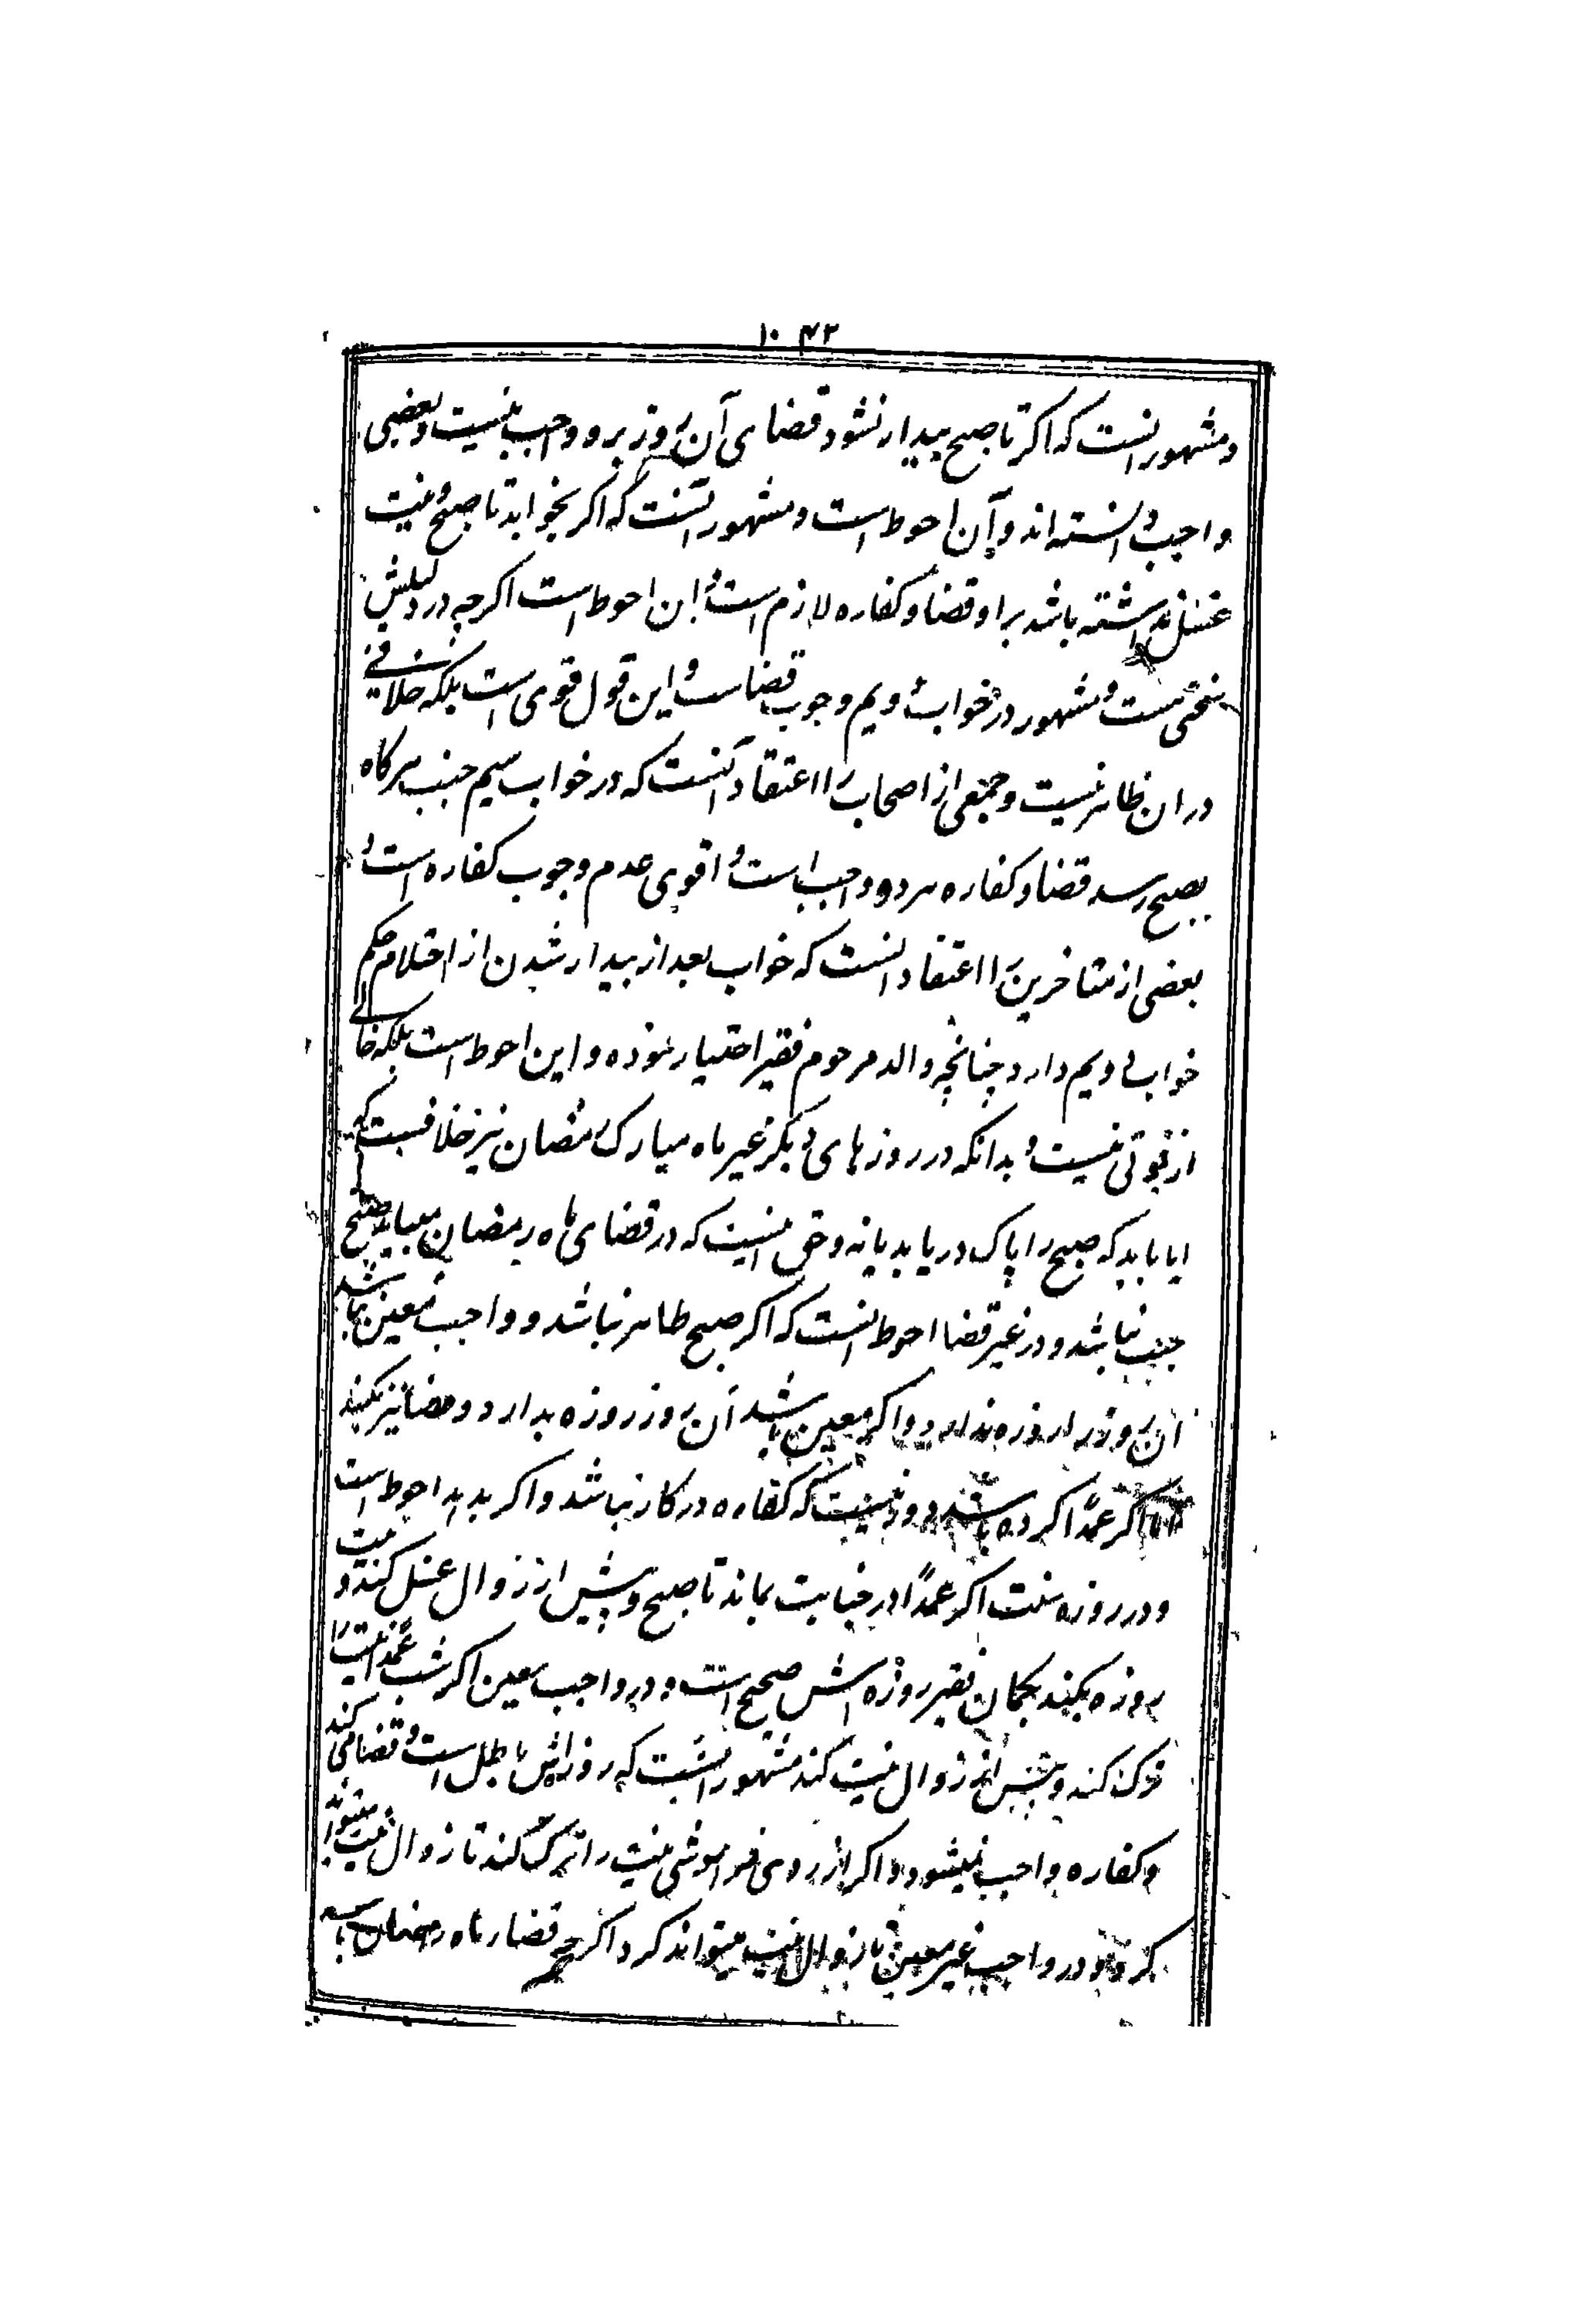 ۱۰۴۲
و مشهور انست که اکر تا صبح بیدار نشود قضای آن روز برو واجب نیست و بعضی
واجب دانسته اند و آن احوط است و مشهور آنست که اکر بخوابد تا صبح و نیت
غسل نداشته باشد بر او قضا و کفاره لازم است و ان احوط است اکرچه در دلیلش
سخنی هست و مشهور در خواب دویم وجوب قضاست و این قول قوی است بلکه خلافی
در ان ظاهر نیست و جمعی از اصحاب را اعتقاد آنست که در خواب سیم جنب هرکاه
بصبح رسد قضا و کفاره هر دو واجب است و اقوی عدم وجوب کفاره است و
بعضی از متاخرین را اعتقاد انست که خواب بعد از بیدار شدن از احتلام حکم
خواب دویم دارد چنانچه والد مرحوم فقیر اختیار نموده و این احوط است بلکه خالی
از قوتی نیست و بدانکه در روزهای دیکر غیر ماه مبارک رمضان نیز خلافست که
ایا باید که صبح را پاک دریابد یا نه و حق اینست که در قضای ماه رمضان میباید صبح
جنب نباشد و در غیر قضا احوط انست که اکر صبح طاهر نباشد و واجب معین نباشد
آن روز را روزه ندارد و اکر معین باشد آن روز روزه بدارد و قضا نیز بکند
اکر عمداً کرده باشد و دور نیست که کفاره در کار نباشد و اکر بدهد احوط است
و در روزه سنت اکر عمداً در جنابت بماند تا صبح و پیش از زوال غسل کند و نیت
روزه بکند بکمان فقیر روزه اش صحیح است و در واجب معین اکر شب عمداً نیت را
ترک کند و پیش از زوال نیت کند مشهور انست که روزه اش باطل است و قضا می کند
و کفاره واجب نمیشود و اکر از روی فراموشی نیت را ترک کند تا زوال نیت میتواند
کرد و در واجب غیر معین تا زوال نیت میتواند کرد اکرچه قضاء ماه رمضان باشد